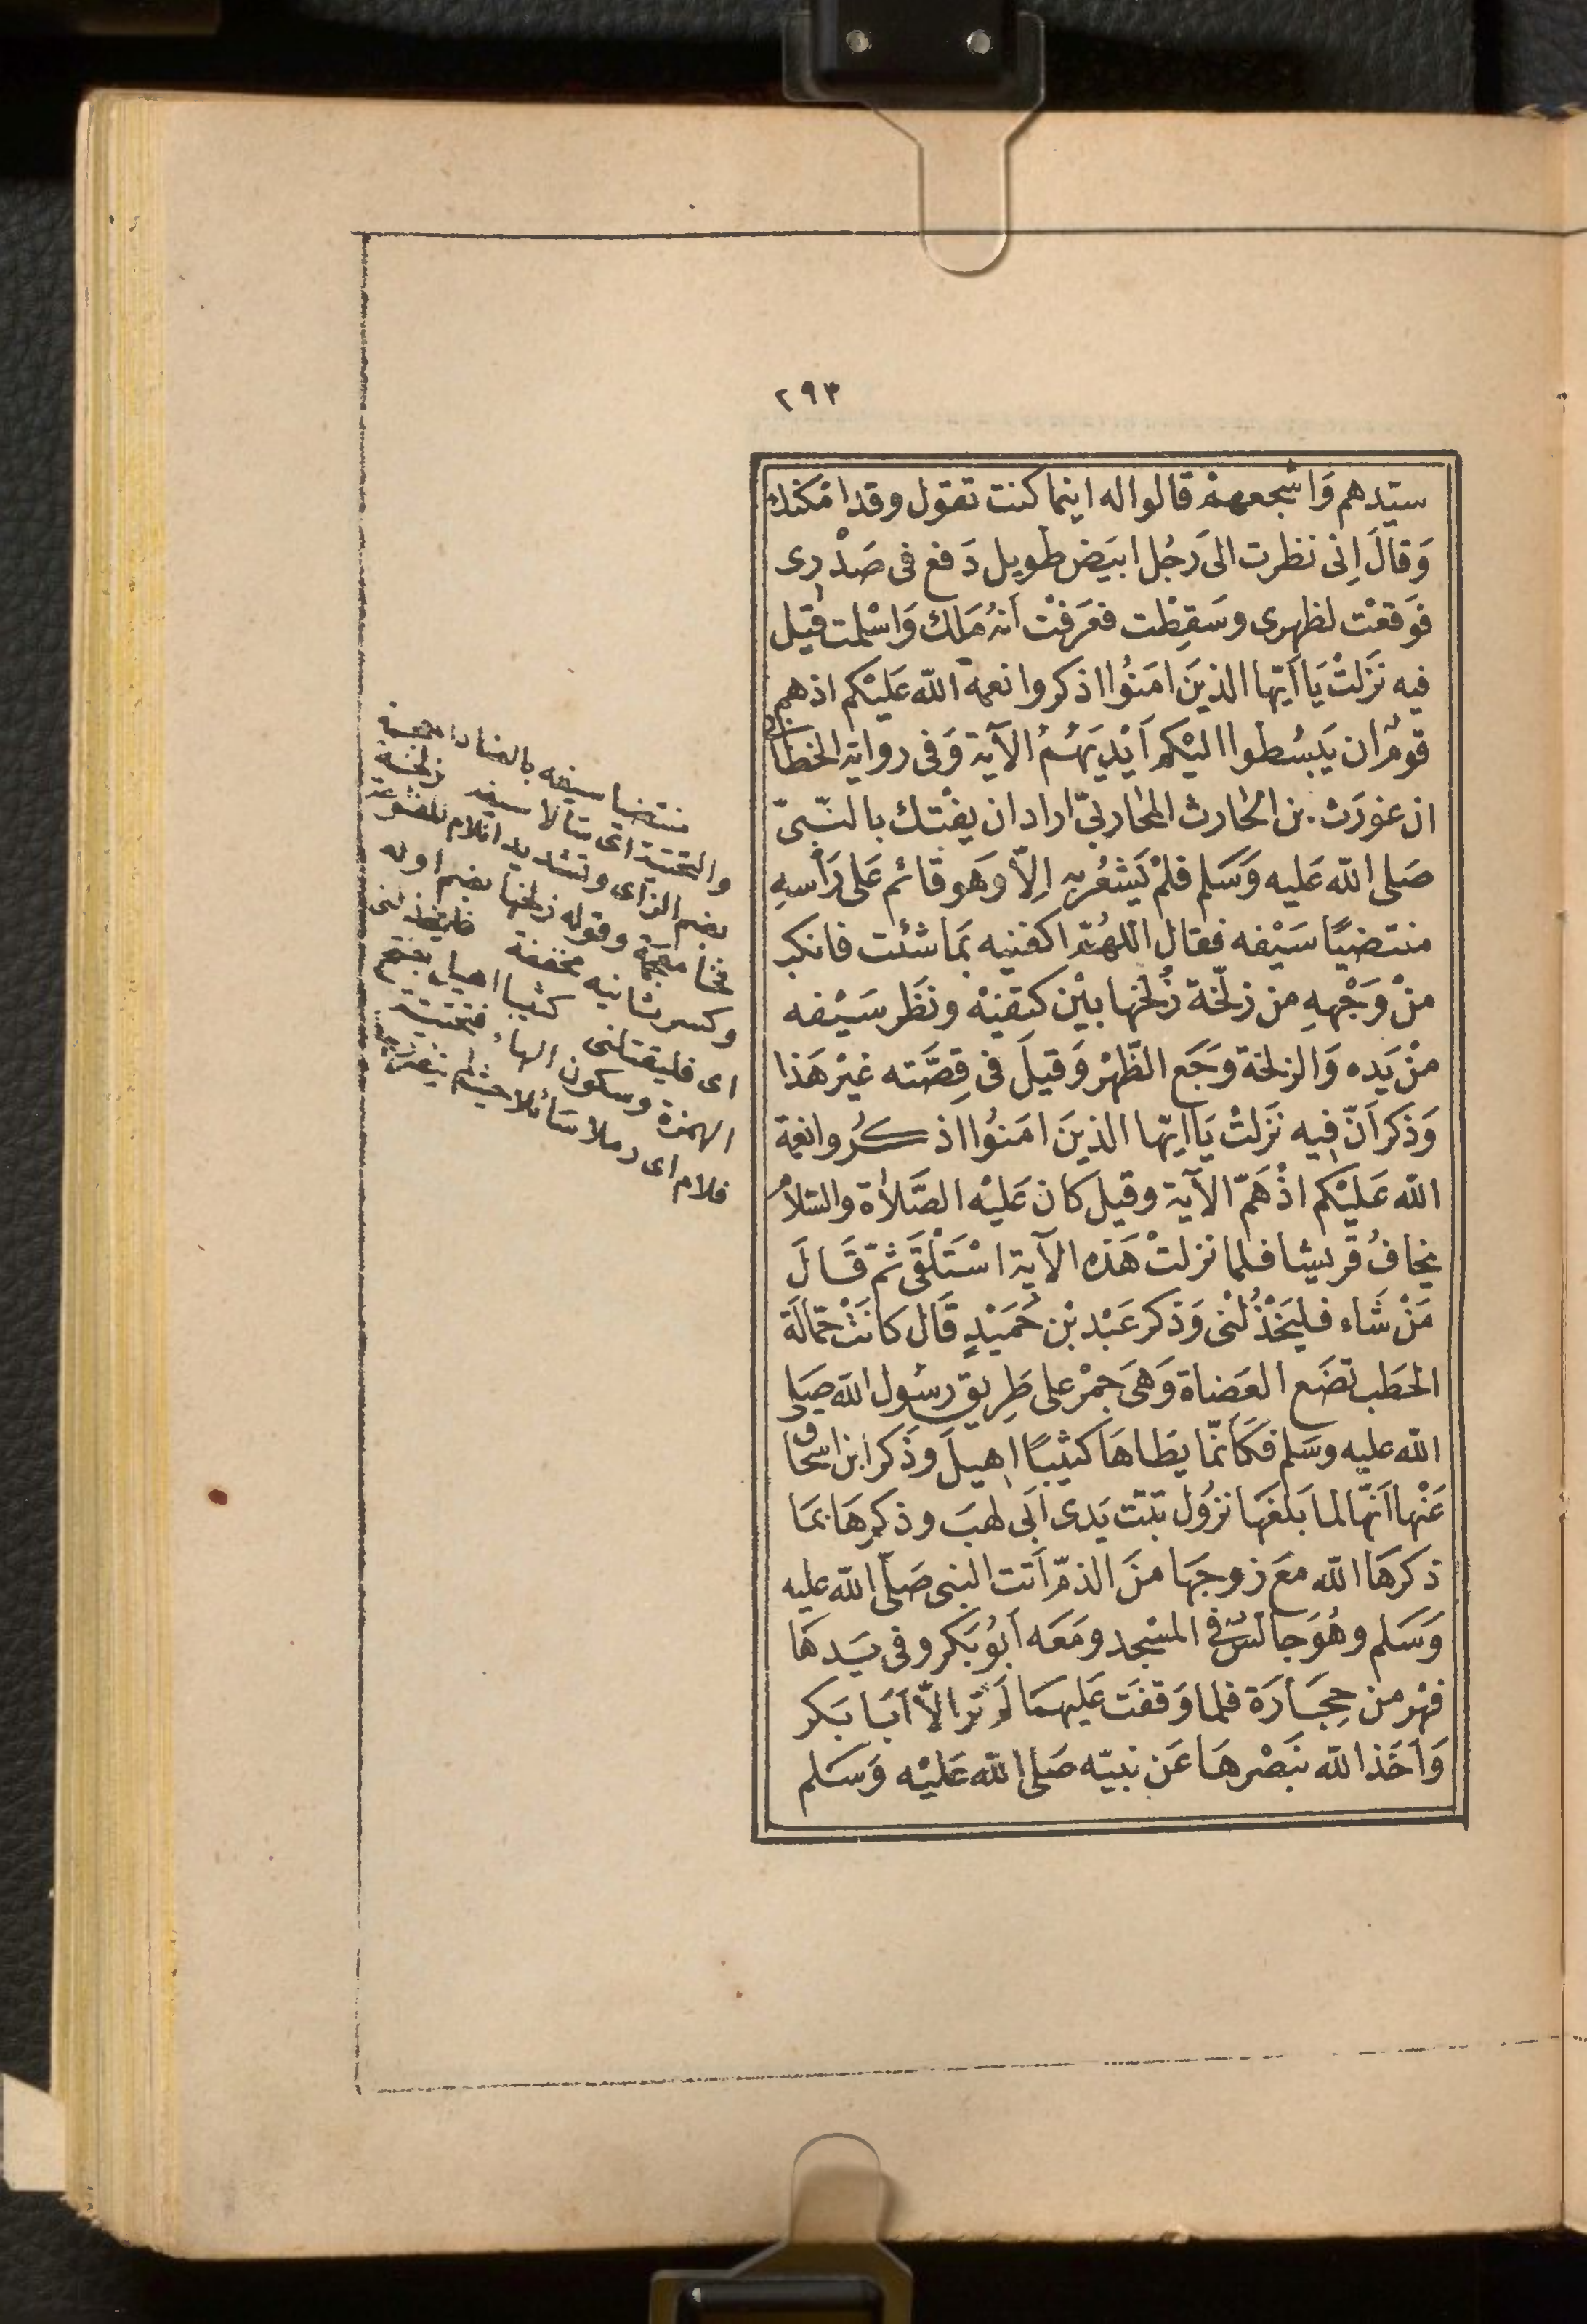 ٢٩٣
سيّدهم وَاشجعهمْ قالوا له اينما كنت تقول وقد امكنك
وَقالَ اِنى نظرت الى رَجُل ابيَض طويل دَفع فى صَدْرى
فوَقعْت لظهرى وسَقِطْت فعَرَفْت اَنهُ مَلك وَاسْلمت قيل
فيه نَزَلتْ يَا اَيّها الذينَ امَنُوا اذكروا نعمة اللّه عَليْكم اذ هم
قومٌ ان يَبسُطوا اليْكم اَيْديَهُمُ الآية وَفى رواية الخطابى
ان غورَث بن الحارث المحاربىّ اراد ان يفْتك بالنّبىّ
صَلى اللّه عَليه وَسَلم فلمْ يَشعُر به اِلاّ وَهو قائم عَلى رَأسِهِ
منتضيًا سَيْفه فقال اللهُمّ اكفنيه بمَا شئت فانكب
منْ وَجْههِ من زلّخة زُلخها بيْن كتفيْه وندَر سَيْفه
منْ يَده وَالزلخة وجَع الظّهْر وَقيلَ فى قِصَّته غيْر هَذا
وَذكر اَنّ فيه نَزَلتْ يَا ايّها الذينَ امَنوُا اذكرُوا نعمة
اللّه عَليْكم اذْ هَمّ الآية وقيل كان عَليْه الصَّلاة والسّلام
يخافُ قُريشا فلما نزلتْ هَذه الآية اسْتَلْقَى ثمّ قَالَ
مَنْ شَاء فليَخْذُلْنى وَذكر عَبْد بْن حُمَيْدٍ قَال كانَتْ حمّالَة
الحَطَب تضَع العَضاة وَهىَ جمْر على طَرِيق رسُول اللّه صَلى
اللّه عليه وسَلم فكَاَنّما يطَاهَا كثيبًا اهيلَ وذَكر ابن اسحاق
عَنْها اَنّها لما بَلغَها نزوُل تبّت يَدى اَبى لهبَ وذكرهَا بمَا
ذكرهَا اللّه معَ زوجهَا منَ الذمّ اَتت النبى صَلّى اللّه عليه
وَسَلم وهُوَ جالسٌ فى المسْجد ومَعَه اَبوُ بَكر وفى يَدهَا
فهْر من حِجَارَة فلما وَقفَت عَليهمَا لمْ تر الاّ اَبَا بَكر
وَاَخَذ اللّه ببَصْرهَا عَن نبيّه صَلى اللّه عَليْه وَسَلم
منتضيا سيفه بالضاد المعجمة
والتحتية اى سالا سيفه زلخة
بضم الزاى وتشديد اللام المفتوحة
فخا معجمة وقوله زلخها بضم اوله
وكسر ثانيه مخففة فليخذلنى
اى فليقتلنى كثيبا اهيل بفتح
الهمزة وسكون الهاء فتحتية
فلام اى رملا سائلا حيث لم يتضرر به